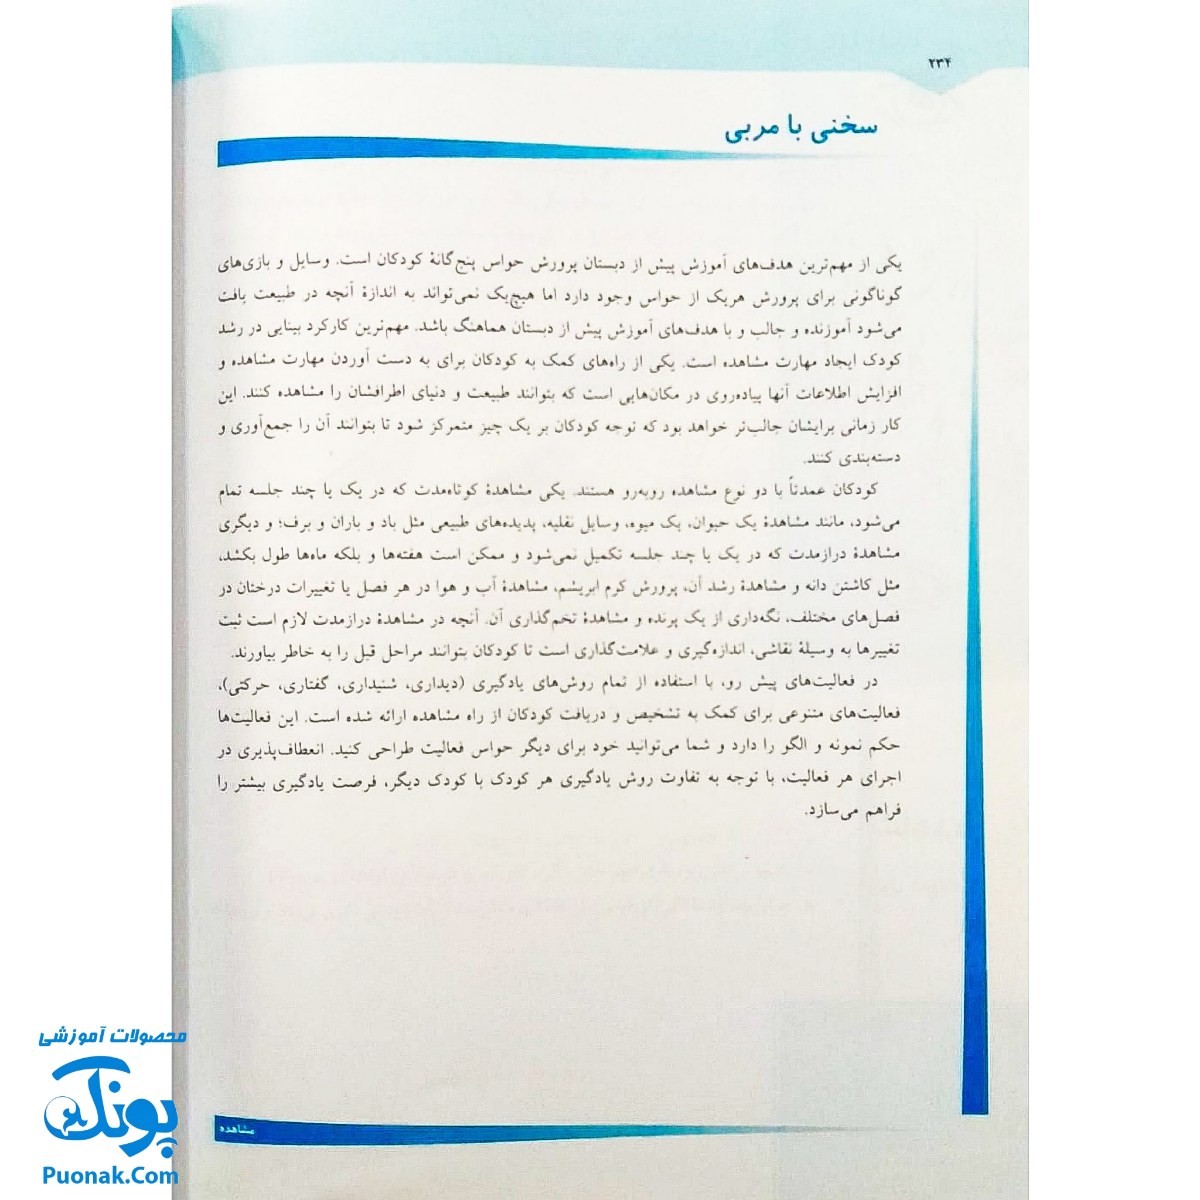 ۲۳۴
سخنی با مربی
یکی از مهم‌ترین هدف‌های آموزش پیش از دبستان پرورش حواس پنج‌گانهٔ کودکان است. وسایل و بازی‌های
گوناگونی برای پرورش هریک از حواس وجود دارد اما هیچ‌یک نمی‌تواند به اندازهٔ آنچه در طبیعت یافت
می‌شود آموزنده و جالب و با هدف‌های آموزش پیش از دبستان هماهنگ باشد. مهم‌ترین کارکرد بینایی در رشد
کودک ایجاد مهارت مشاهده است. یکی از راه‌های کمک به کودکان برای به دست آوردن مهارت مشاهده و
افزایش اطلاعات آنها پیاده‌روی در مکان‌هایی است که بتوانند طبیعت و دنیای اطرافشان را مشاهده کنند. این
کار زمانی برایشان جالب‌تر خواهد بود که توجه کودکان بر یک چیز متمرکز شود تا بتوانند آن را جمع‌آوری و
دسته‌بندی کنند.
کودکان عمدتاً با دو نوع مشاهده روبه‌رو هستند. یکی مشاهدهٔ کوتاه‌مدت که در یک یا چند جلسه تمام
می‌شود، مانند مشاهدهٔ یک حیوان، یک میوه، وسایل نقلیه، پدیده‌های طبیعی مثل باد و باران و برف؛ و دیگری
مشاهدهٔ درازمدت که در یک یا چند جلسه تکمیل نمی‌شود و ممکن است هفته‌ها و بلکه ماه‌ها طول بکشد،
مثل کاشتن دانه و مشاهدهٔ رشد آن، پرورش کرم ابریشم، مشاهدهٔ آب و هوا در هر فصل یا تغییرات درختان در
فصل‌های مختلف، نگه‌داری از یک پرنده و مشاهدهٔ تخم‌گذاری آن. آنچه در مشاهدهٔ درازمدت لازم است ثبت
تغییرها به وسیلهٔ نقاشی، اندازه‌گیری و علامت‌گذاری است تا کودکان بتوانند مراحل قبل را به خاطر بیاورند.
در فعالیت‌های پیش رو، با استفاده از تمام روش‌های یادگیری (دیداری، شنیداری، گفتاری، حرکتی)،
فعالیت‌های متنوعی برای کمک به تشخیص و دریافت کودکان از راه مشاهده ارائه شده است. این فعالیت‌ها
حکم نمونه و الگو را دارد و شما می‌توانید خود برای دیگر حواس فعالیت طراحی کنید. انعطاف‌پذیری در
اجرای هر فعالیت، با توجه به تفاوت روش یادگیری هر کودک با کودک دیگر، فرصت یادگیری بیشتر را
فراهم می‌سازد.
مشاهده
محصولات آموزشی
پونک
Puonak.Com